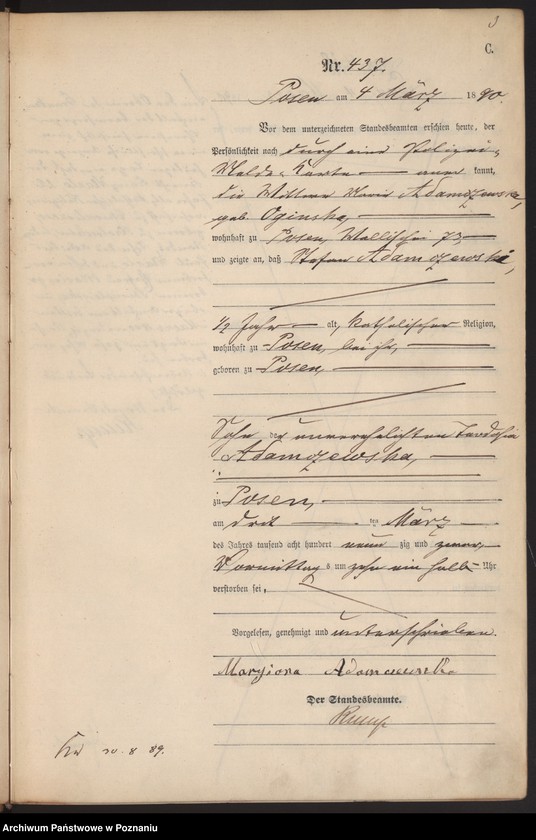 3
C.
Nr. 437.
Posen am 4 März 1890.
Vor dem unterzeichneten Standesbeamten erschien heute, der
Persönlichkeit nach durch eine Polizei-
Melde-Karte aner kannt,
die Wittwe Marie Adamczewska,
geb. Oginska,
wohnhaft zu Posen, Wallischei 73
und zeigte an, daß Stefan Adamczewski,
1/2 Jahr alt, katholischer Religion,
wohnhaft zu Posen, bei ihr,
geboren zu Posen,
Sohn der unverehelichten
Adamczewska,
zu Posen,
am drit ten März
des Jahres tausend acht hundert neun zig und zwar
Vormittag s um zehn ein halb Uhr
verstorben sei,
Vorgelesen, genehmigt und unterschrieben.
Maryiona
Der Standesbeamte.
30. 8 89.
Archiwum Państwowe w Poznaniu